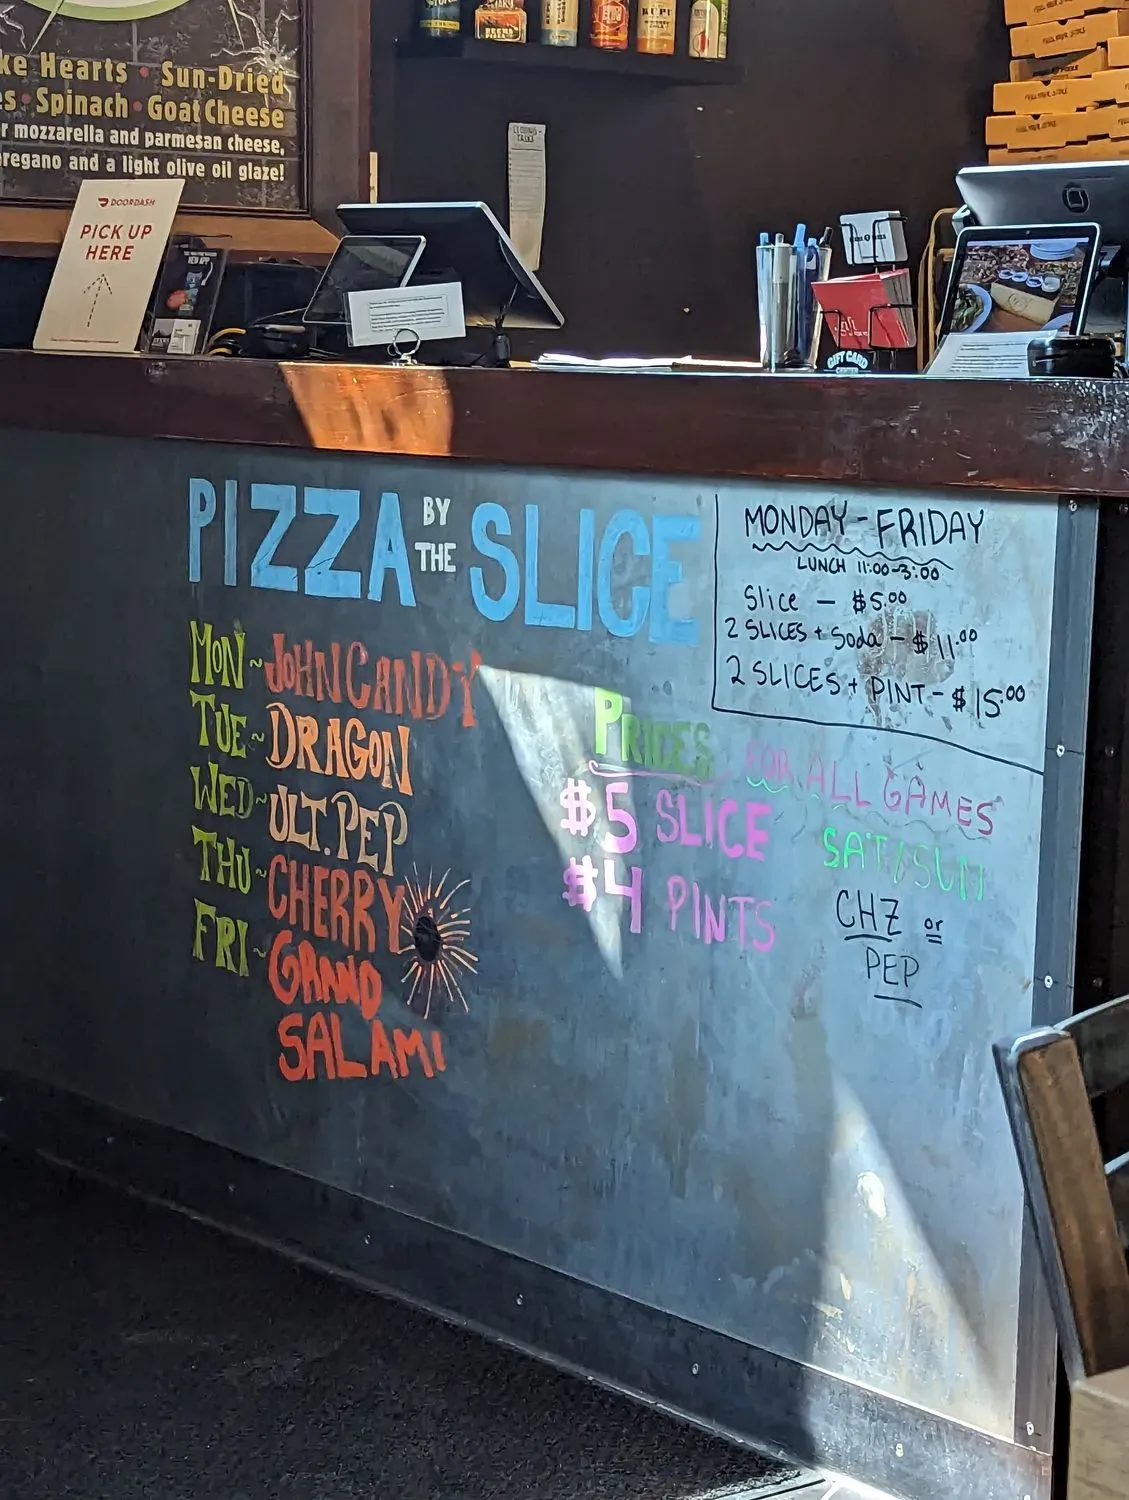 ke Hearts • Sun-Dried
es • Spinach • Goat Cheese
r mozzarella and parmesan cheese,
regano and a light olive oil glaze!
DOORDASH
PICK UP
HERE
CLOSING
GIFT CARD
CENTER
PIZZA BY THE SLICE
MON ~ JOHN CANDY
TUE ~ DRAGON
WED ~ ULT. PEP
THU ~ CHERRY
FRI ~ GRAND
SALAMI
MONDAY - FRIDAY
LUNCH 11:00-3:00
Slice — $5.00
2 SLICES + Soda — $11.00
2 SLICES + PINT - $15.00
PRICES FOR ALL GAMES
$5 SLICE
$4 PINTS
SAT/SUN
CHZ or
PEP